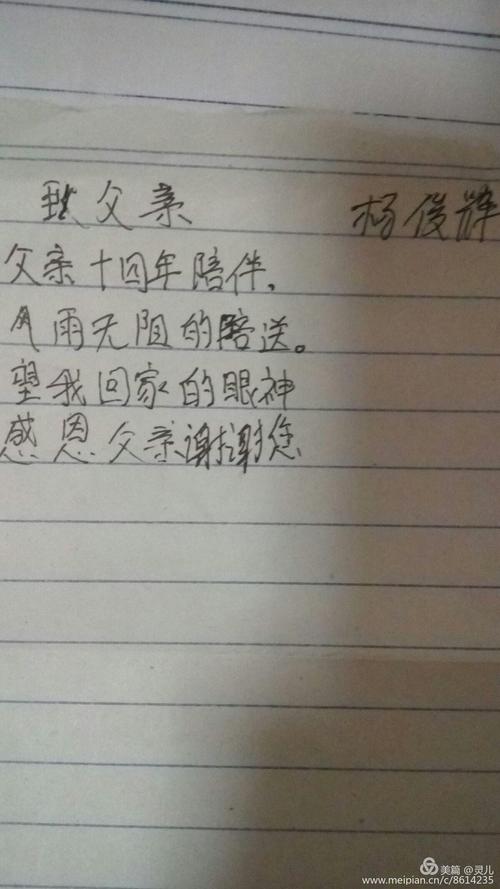 致父亲 杨俊辉
父亲十四年陪伴,
风雨无阻的陪送。
望我回家的眼神
感恩父亲谢谢您
美篇 @灵儿
www.meipian.cn/c/8614235